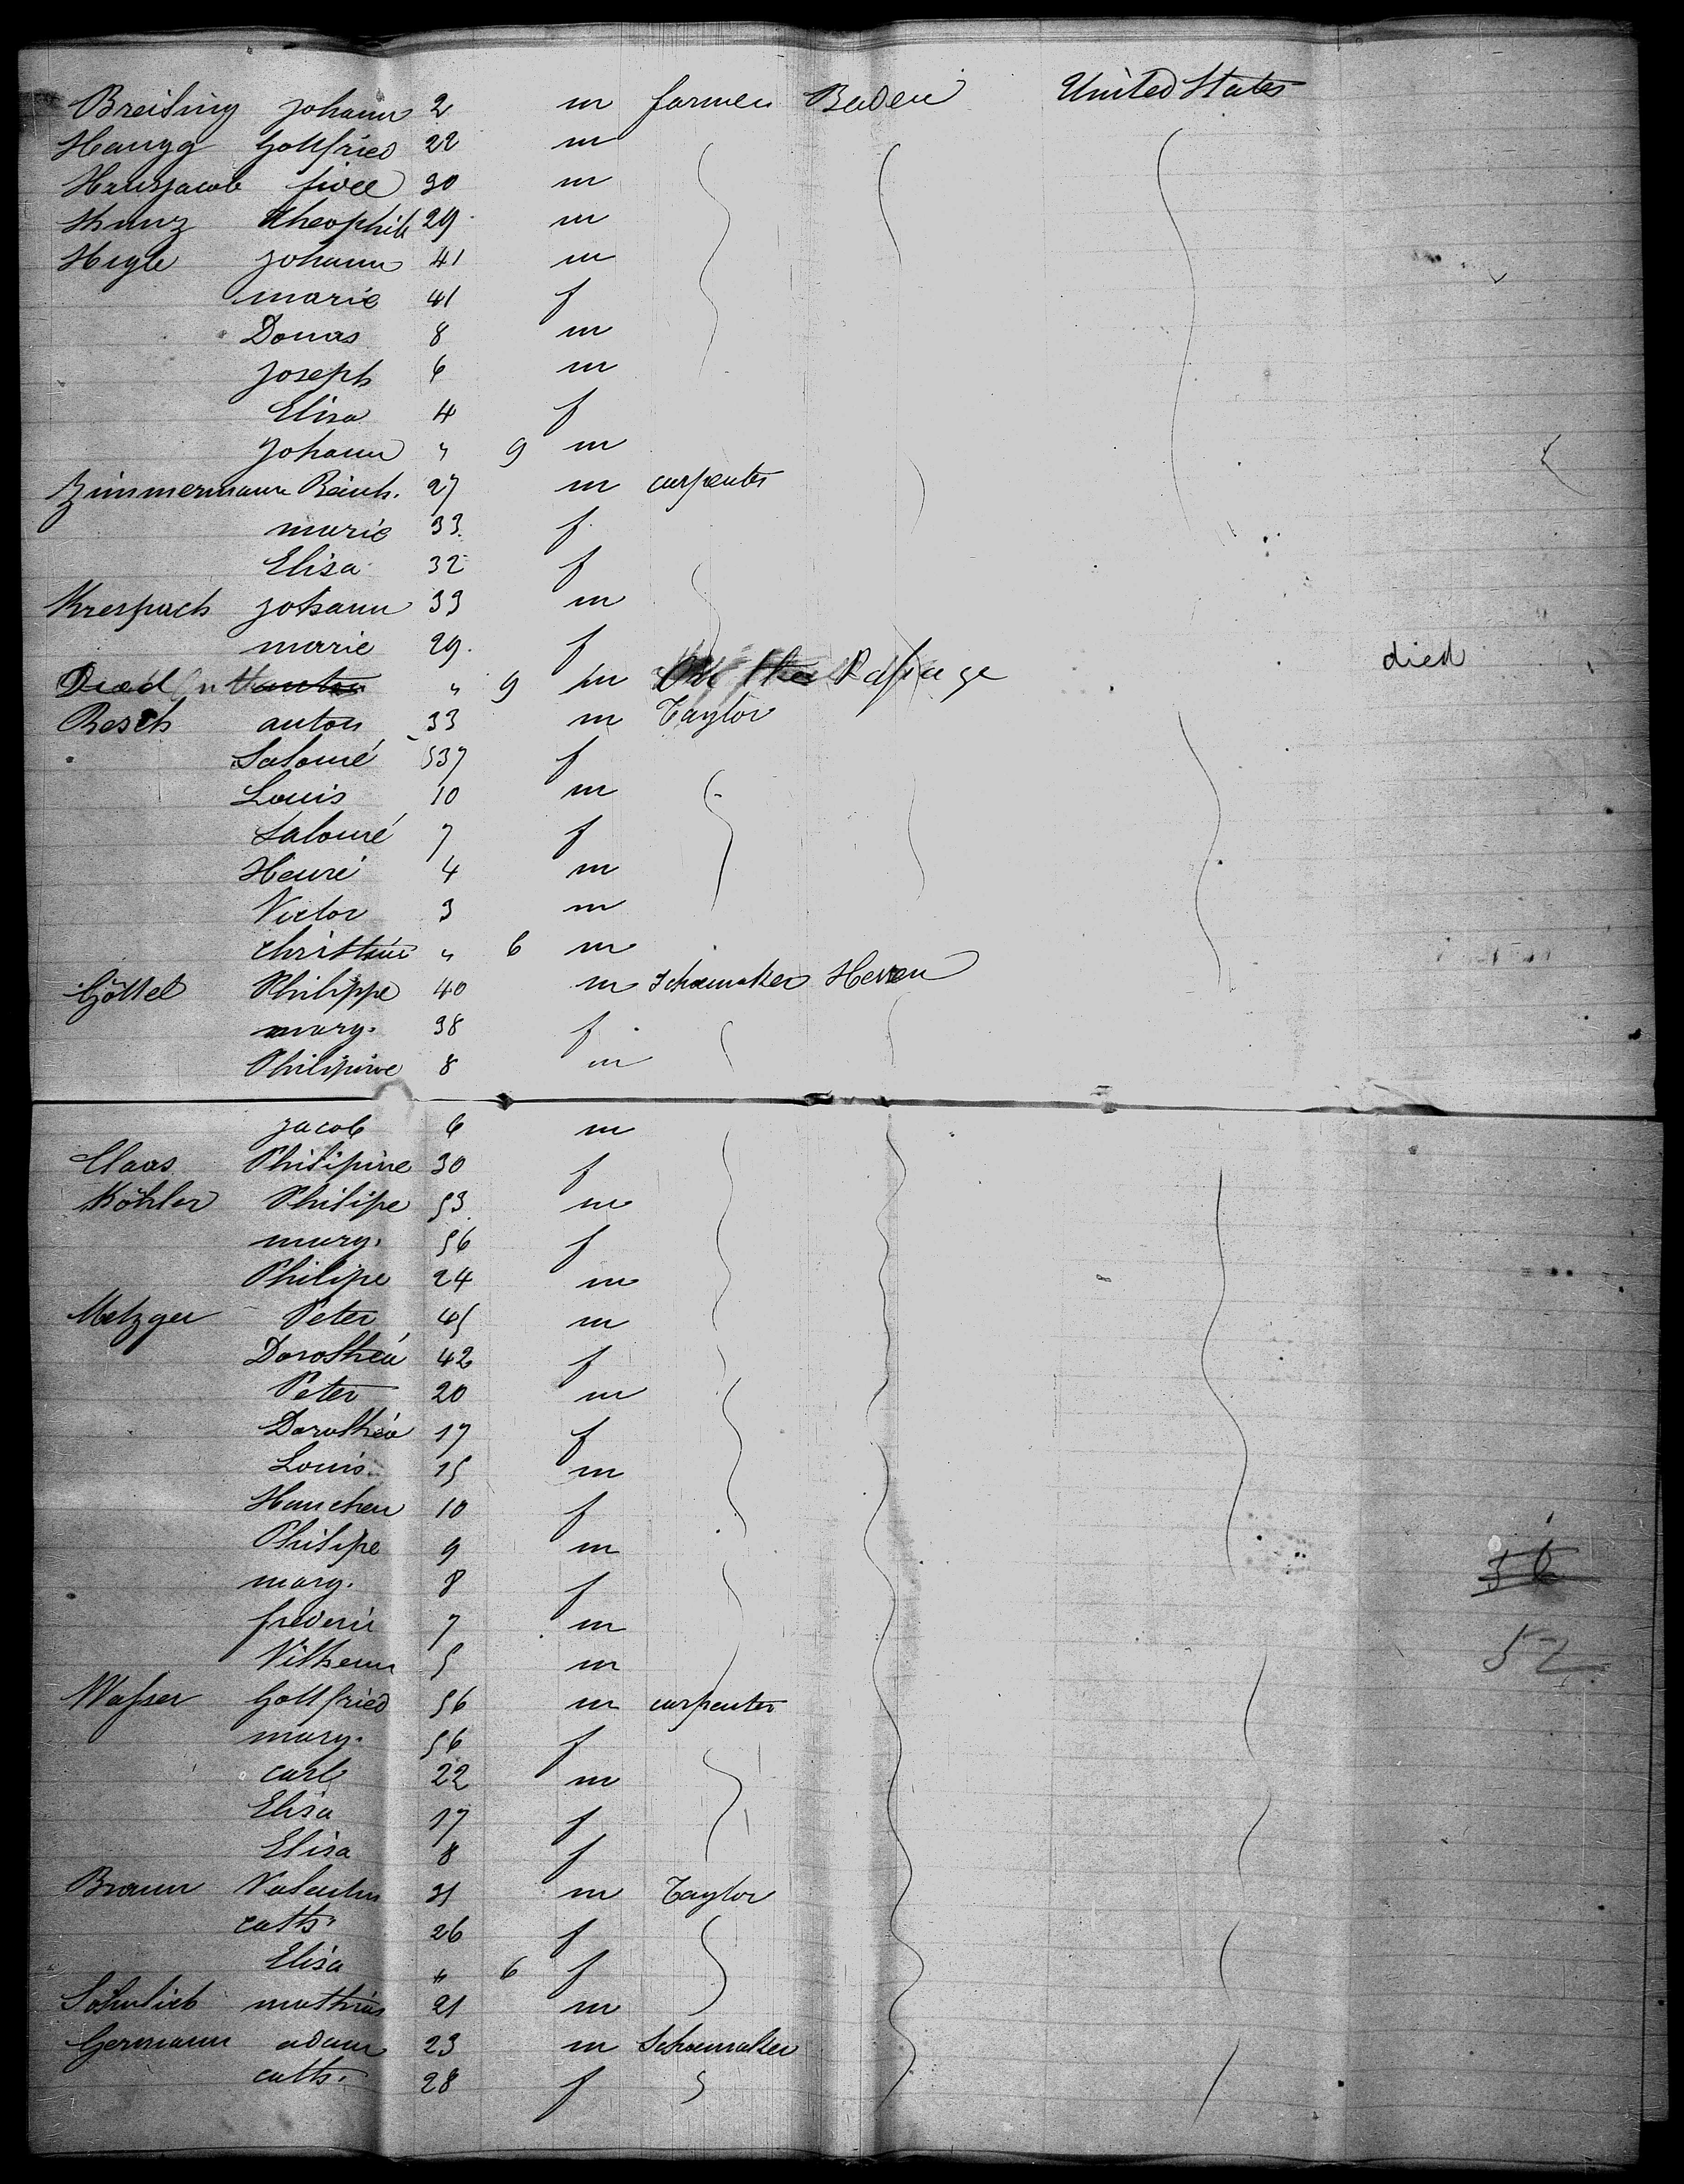 Breising Johann 2 m farmer Baden United States
Haugg Gottfried 22 m
Hansjacob 30 m
Kunz Theophil 29 m
Higle Johann 41 m
marie 41 f
Donas 8 m
Joseph 6 m
Elisa 4 f
Johann " 9 m
Zimmermann Reinh. 27 m carpenter
marie 33 f
Elisa 32 f
Krespach Johann 33 m
marie 29 f
Died " 9 m On the Passage died
Resch anton 33 m Taylor
Salomé 37 f
Louis 10 m
Salomé 7 f
Henri 4 m
Victor 3 m
christine " 6 m
Göttel Philippe 40 m Schoemaker Hessen
mary. 38 f
Philipine 8 m
Jacob 6 m
Claas Philipine 30 f
Köhler Philipe 53 m
mary. 56 f
Philipe 24 m
Metzger Peter 45 m
Dorothéa 42 f
Peter 20 m
Dorothéa 17 f
Louis 15 m
Hanchen 10 f
Philipe 9 m
mary. 8 f
frederic 7 m
Vilhem 5 m
52
Wasser Gottfried 56 m carpenter
mary. 56 f
carl 22 m
Elisa 17 f
Elisa 8 f
Braun Valentin 31 m Taylor
cath. 26 f
Elisa " 6 f
mathias 21 m
Germann adam 23 m Schoemaker
cath. 28 f